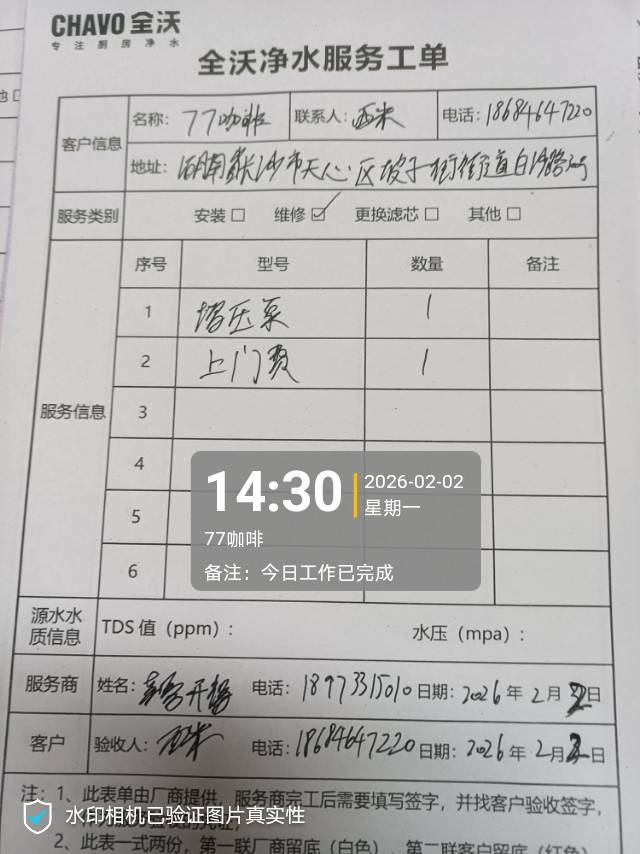 CHAVO 全沃
专注厨房净水
全沃净水服务工单
客户信息
名称：77咖啡 联系人：西米 电话：18684647220
地址：湖南省长沙市天心区坡子街街道白沙路
服务类别 安装□ 维修☑ 更换滤芯□ 其他□
服务信息
序号 型号 数量 备注
1 增压泵 1
2 上门费 1
3
4
5
6
14:30 2026-02-02
星期一
77咖啡
备注：今日工作已完成
源水水质信息 TDS 值（ppm）： 水压（mpa）：
服务商 姓名： 电话：18973315010 日期：2026年2月2日
客户 验收人：西米 电话：18684647220 日期：2026年2月2日
注：1、此表单由厂商提供，服务商完工后需要填写签字，并找客户验收签字，
水印相机已验证图片真实性
2、此表一式两份，第一联厂商留底（白色），第二联客户留底（红色）